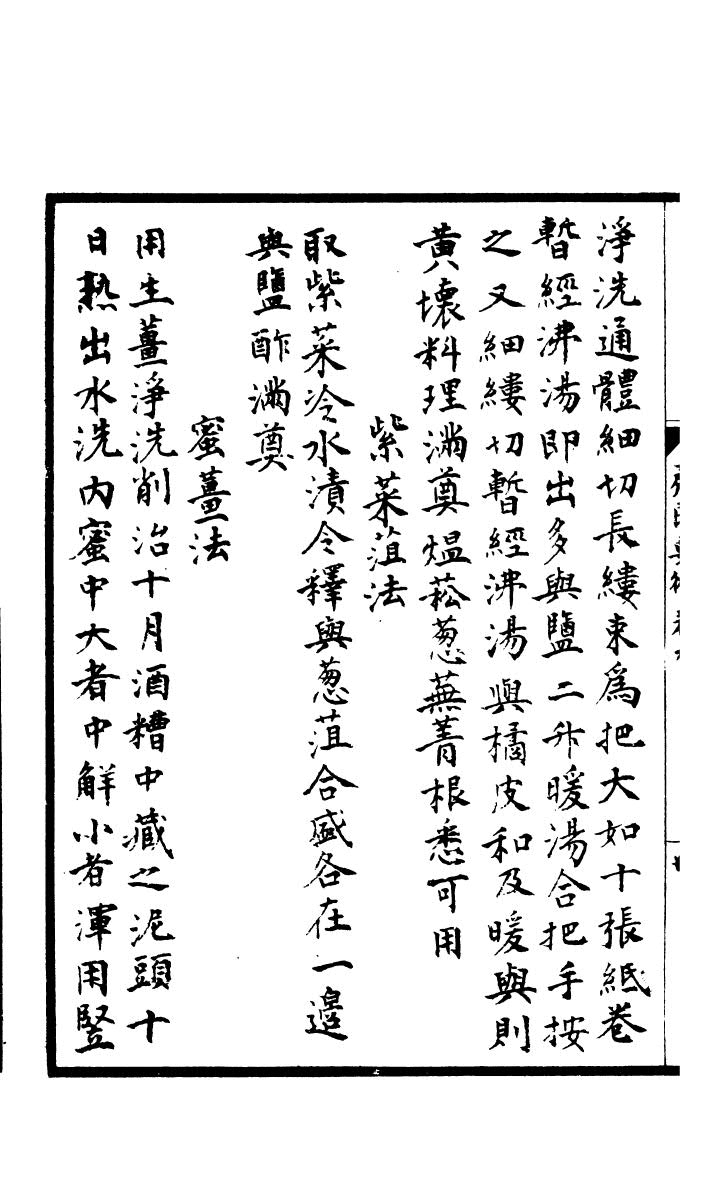 淨洗通體細切長縷束爲把大如十張紙卷
暫經沸湯即出多與鹽二升暖湯合把手按
之又細縷切暫經沸湯與橘皮和及暖與則
黃壞料理滿奠煴菘葱蕪菁根悉可用
紫菜菹法
取紫菜冷水漬令釋與葱菹合盛各在一邉
與鹽酢滿奠
蜜薑法
用生薑淨洗削治十月酒糟中藏之泥頭十
日熟出水洗内蜜中大者中解小者渾用竪